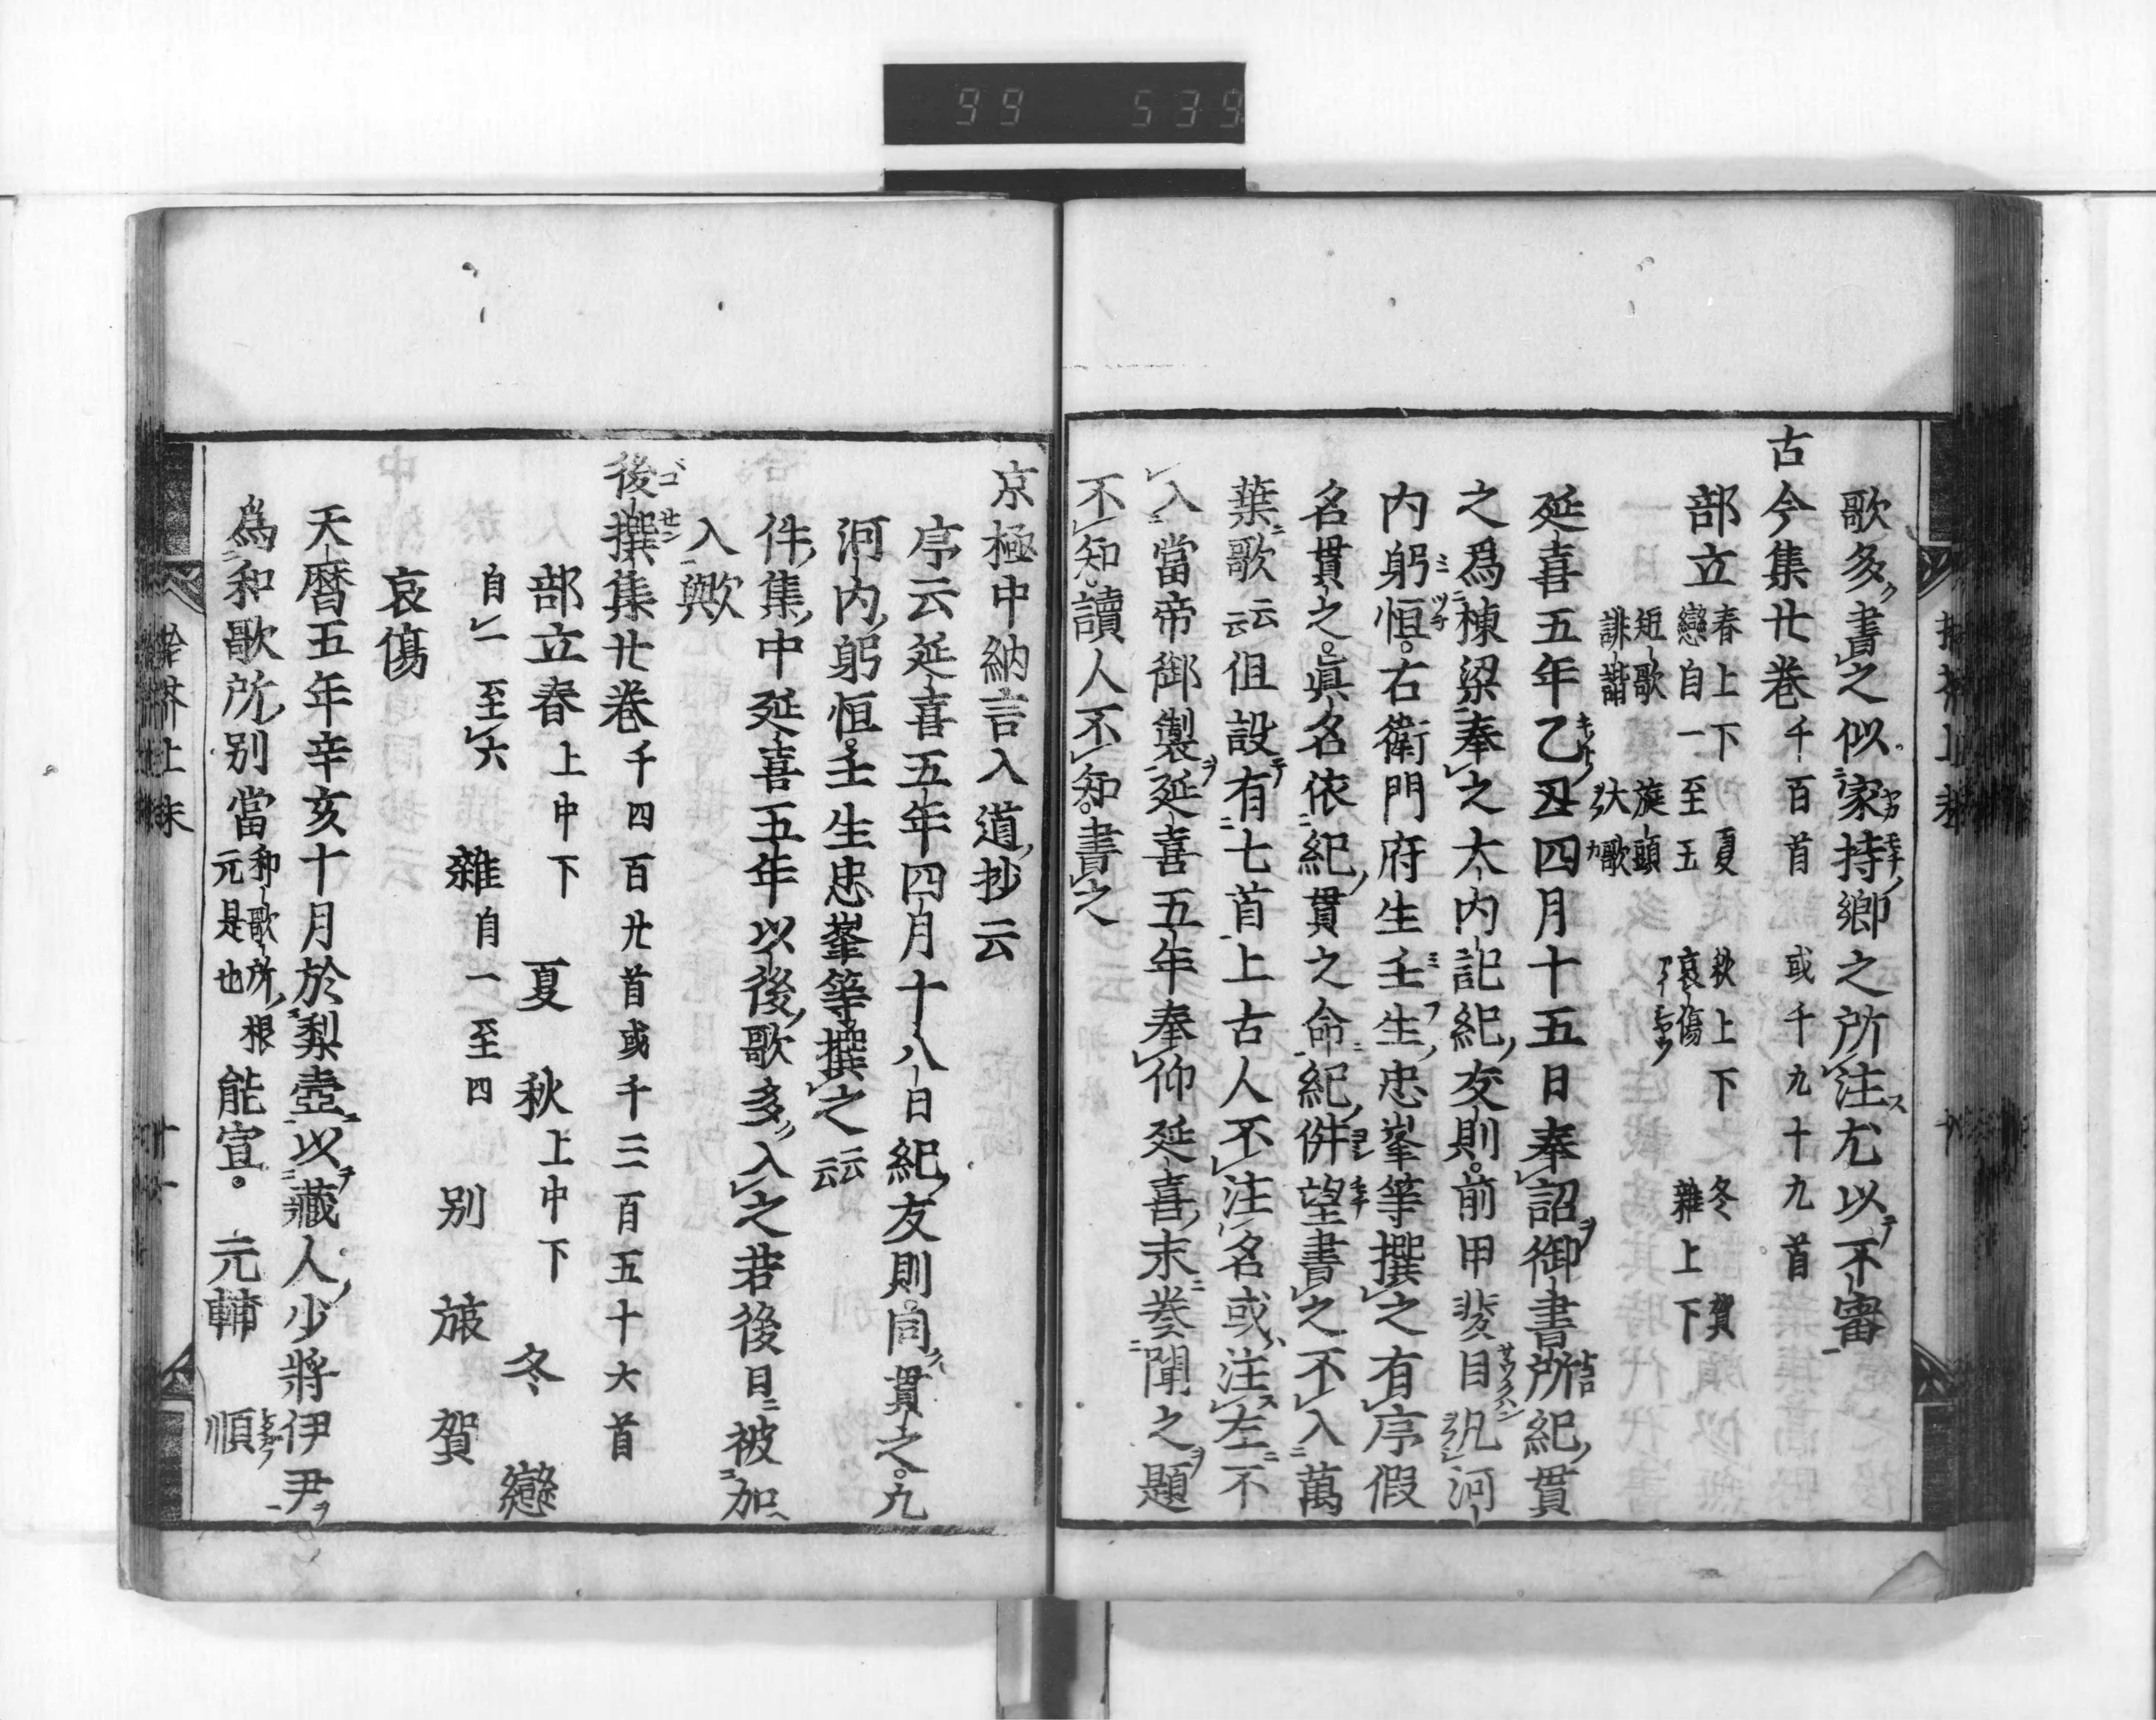 99 539
歌多書之似家持卿之所注尤以不審
古今集廿卷千百首 或千九十九首
部立春上下 夏 秋上下 冬 賀
戀自一至五 哀傷 雜上下
短歌 旋頭
誹諧 大歌
延喜五年乙丑四月十五日奉詔御書所紀貫
之爲棟梁奉之大内記紀友則前甲斐目凡河
内躬恒右衛門府生壬生忠峯等撰之有序假
名貫之眞名依紀貫之命紀淑望書之不入萬
葉歌云云但設有七首上古人不注名或注左不
入當帝御製延喜五年奉仰延喜末卷聞之題
不知讀人不知書之
京極中納言入道抄云
序云延喜五年四月十八日紀友則同貫之凡
河内躬恒壬生忠峯等撰之云云
件集中延喜五年以後歌多入之若後日被加
入歟
後撰集廿卷千四百廿首或千三百五十六首
部立春上中下 夏 秋上中下 冬 戀
自一至六 雜自一至四 别 旅 賀
哀傷
天曆五年辛亥十月於梨壺以藏人少將伊尹
為和歌所别當和歌所根元是也 能宣 元輔 順